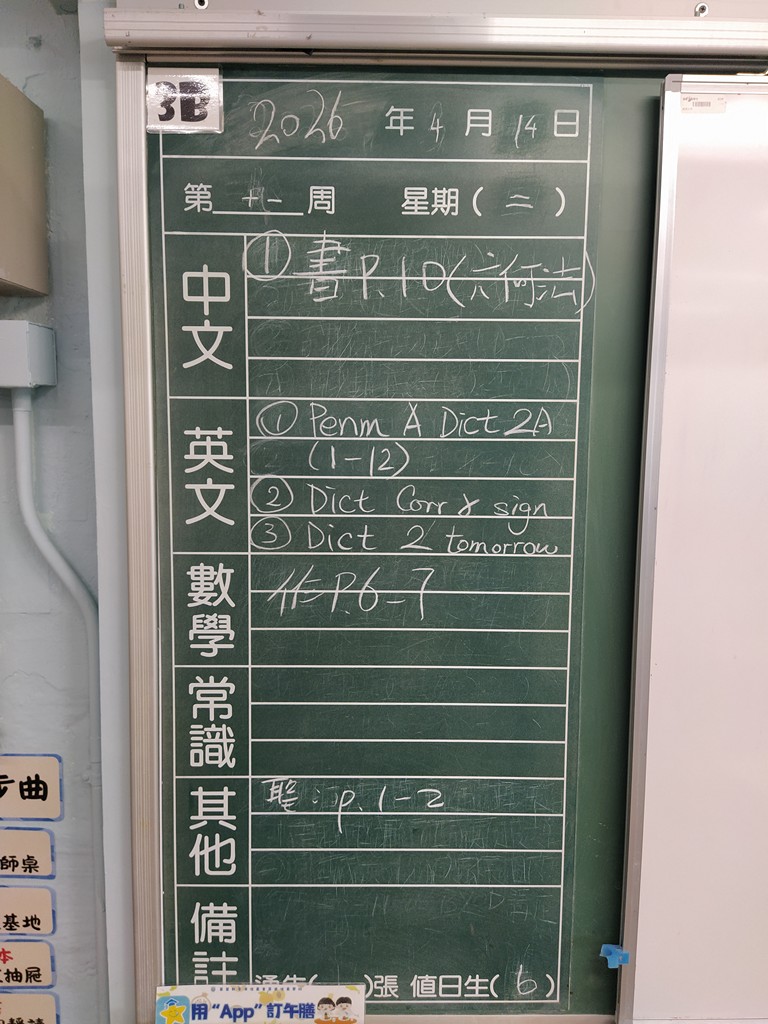 3B
2026 年 4 月 14 日
第 十一 周 星期 ( 二 )
中文
① 書 P.10 (六何法)
英文
① Penm A Dict 2A
(1-12)
② Dict Corr & sign
③ Dict 2 tomorrow
數學
作 P.6-7
常識
其他
聖: p.1-2
備註
通告( )張 值日生( 6 )
用“App”訂午膳
步曲
師桌
基地
本
抽屜